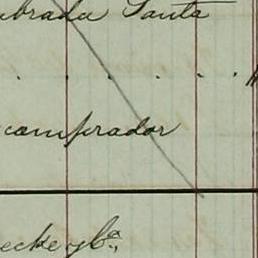 ubrada Santa
comprador
ecke y Ca.,